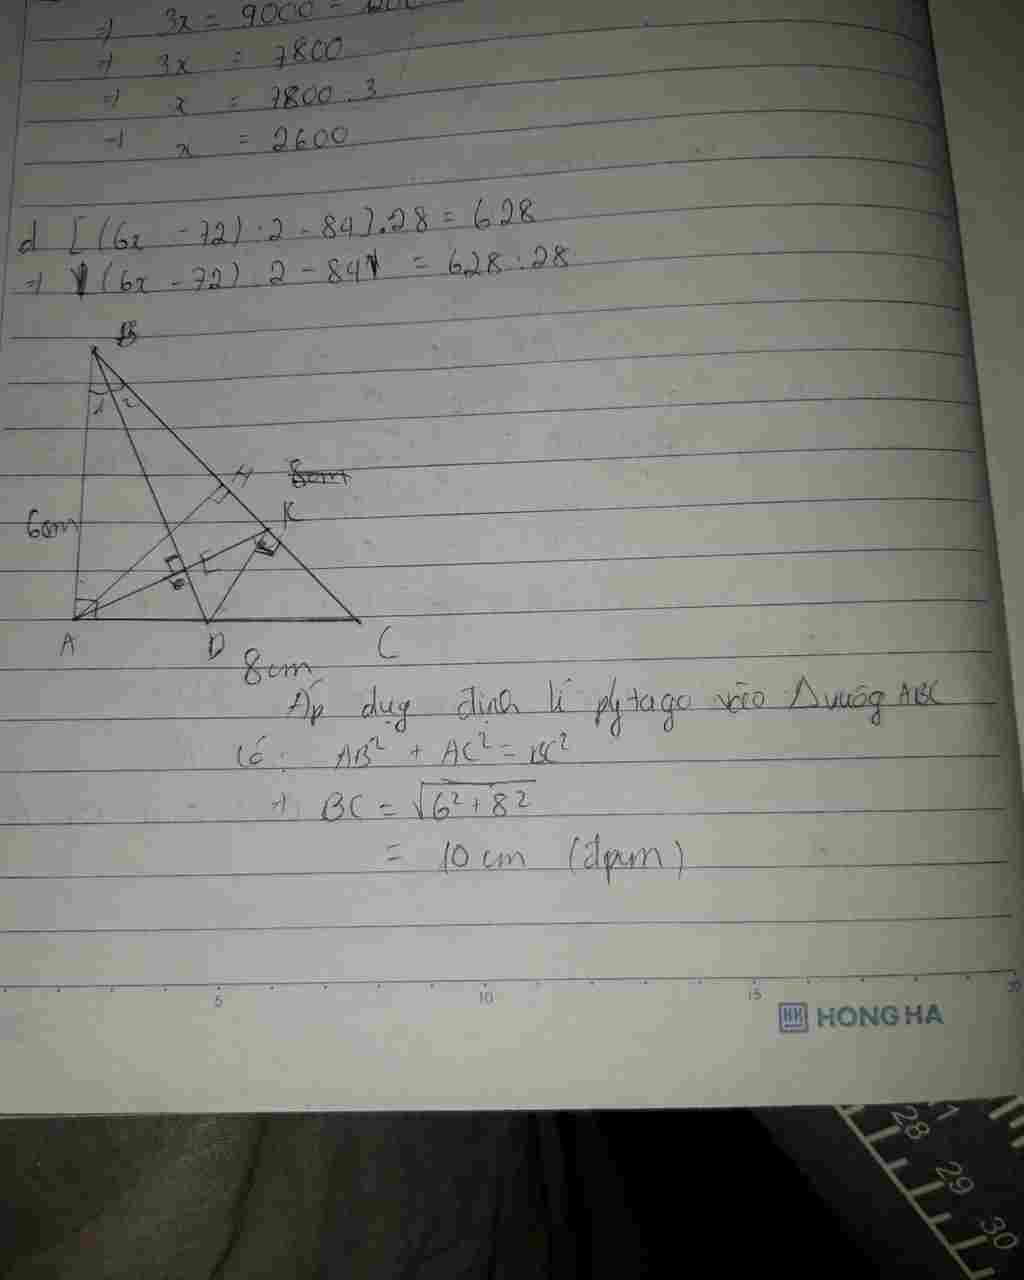 => 3x = 9000 -
=> 3x = 7800
=> x = 7800 . 3
=> x = 2600
d [(6x - 72) : 2 - 84] . 28 = 628
=> (6x - 72) . 2 - 84 = 628 : 28
B
1 2
H 8cm
6cm
K
E
A D C
8cm
Áp dụg định lí pytago vào Δ vuôg ABC
Có : AB² + AC² = BC²
=> BC = √6² + 8²
= 10 cm (đpcm)
5 10 15 20
HH HONG HA
28
29
30